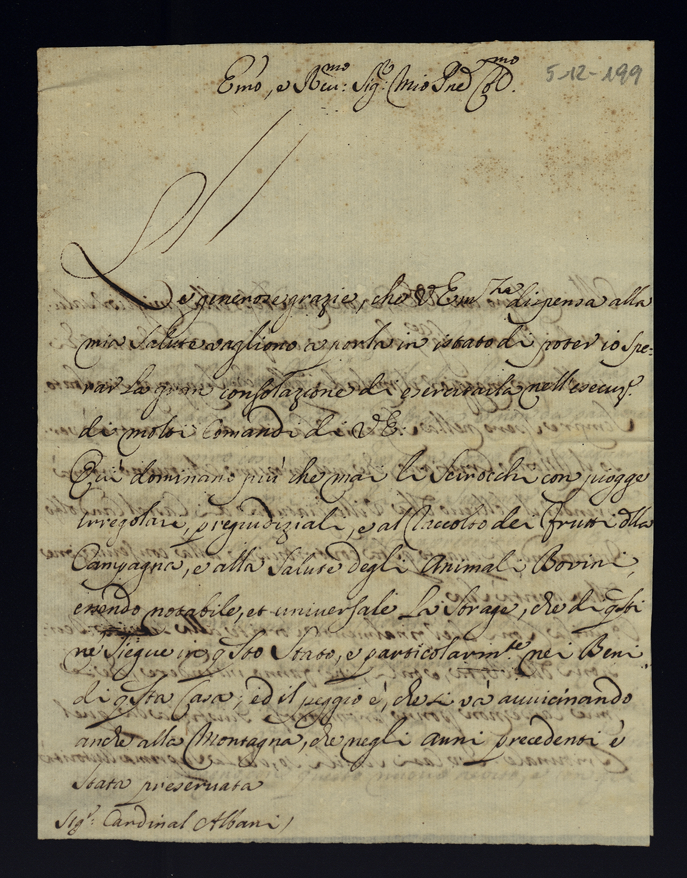 Emo, e Rmo: Sigr. Mio Pne Colmo.
5-12-199
Le generose grazie, che V Emza dispensa alla
mia Salute vagliono a porla in istato di poter io spe=
rar La gran consolazione di esercitarla nell'esecuze.
di molti Comandi di V E:
Qui dominano più che mai li Scirocchi con piogge
irregolari, pregiudiziali, e al Raccolto dei frutti dlla
Campagna, e alla Salute degli Animali Bovini,
essendo notabile, et universale La Strage, che di qsti
ne siegue in qsto Stato, e particolarmte nei Beni
di qsta Casa; ed il peggio è, che si và avvicinando
anche alla Montagna, che negli anni precedenti è
stata preservata
Sigr. Cardinal Albani